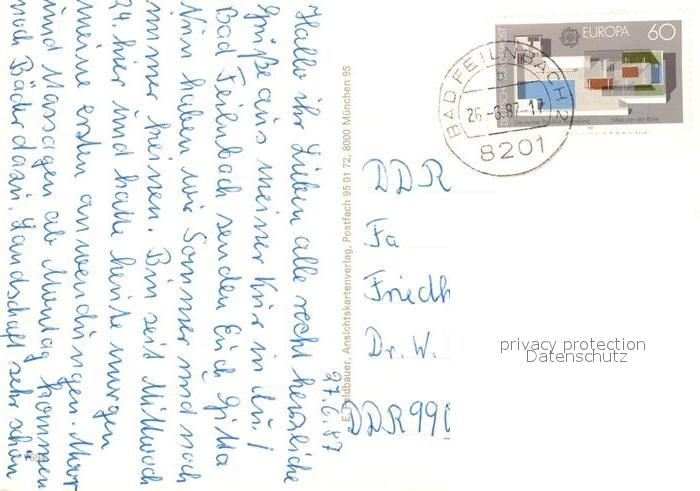 Hallo ihr Lieben alle recht herzliche
Grüße aus meiner Kur in
Bad Feilnbach senden Euch Gitta
Nun haben wir Sommer und noch
immer heizen. Bin seit Mittwoch
24. hier und hatte heute morgen
meine ersten anwendungen. Moor
und Massagen ab Montag kommen
noch Bäder dazu. Landschaft sehr schön
27.6.87
E. Feldbauer, Ansichtskartenverlag, Postfach 95 01 72, 8000 München 95
EUROPA 60
DEUTSCHE BUNDESPOST
BAD FEILNBACH 2
26.-6.87-17
8201
DDR
Fa
Friedh
Dr. W.
DDR 990
privacy protection
Datenschutz